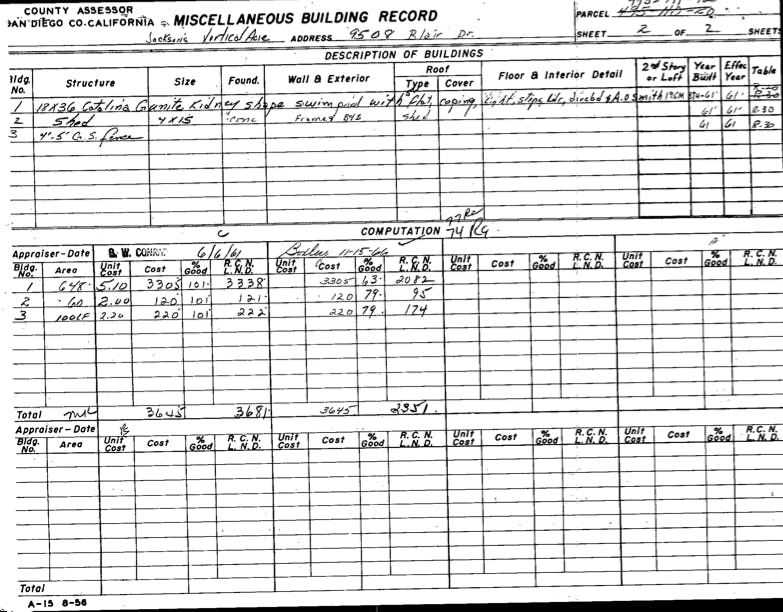 COUNTY ASSESSOR
SAN DIEGO CO. CALIFORNIA - MISCELLANEOUS BUILDING RECORD
PARCEL
ADDRESS 9508 Blair Dr.
SHEET 2 OF 2 SHEETS
DESCRIPTION OF BUILDINGS
Bldg. No. Structure Size Found. Wall & Exterior Roof Type Cover Floor & Interior Detail 2nd Story or Loft Year Built Effec Year Table
1 18x36 Catalina Gunite Kidney shape swim pool with flat, coping, light, steps, ldr, & A.O Smith 61' 61'
2 Shed 4x15 conc Framed B4S Shed 61' 61' 8.30
3 4'-5' C.S. Fence 61 61 8.30
COMPUTATION 74
Appraiser-Date 6/6/61 11-15-66
Bldg. No. Area Unit Cost Cost % Good R.C.N. L.N.D. Unit Cost Cost % Good R.C.N. L.N.D. Unit Cost Cost % Good R.C.N. L.N.D. Unit Cost Cost % Good R.C.N. L.N.D.
1 648 5.10 3305 101 3338 3305 63 2082
2 60 2.00 120 101 121 120 79 95
3 100LF 2.20 220 101 222 220 79 174
Total 3645 3681 3645 2351
Appraiser-Date
Bldg. No. Area Unit Cost Cost % Good R.C.N. L.N.D. Unit Cost Cost % Good R.C.N. L.N.D. Unit Cost Cost % Good R.C.N. L.N.D. Unit Cost Cost % Good R.C.N. L.N.D.
Total
A-15 8-56